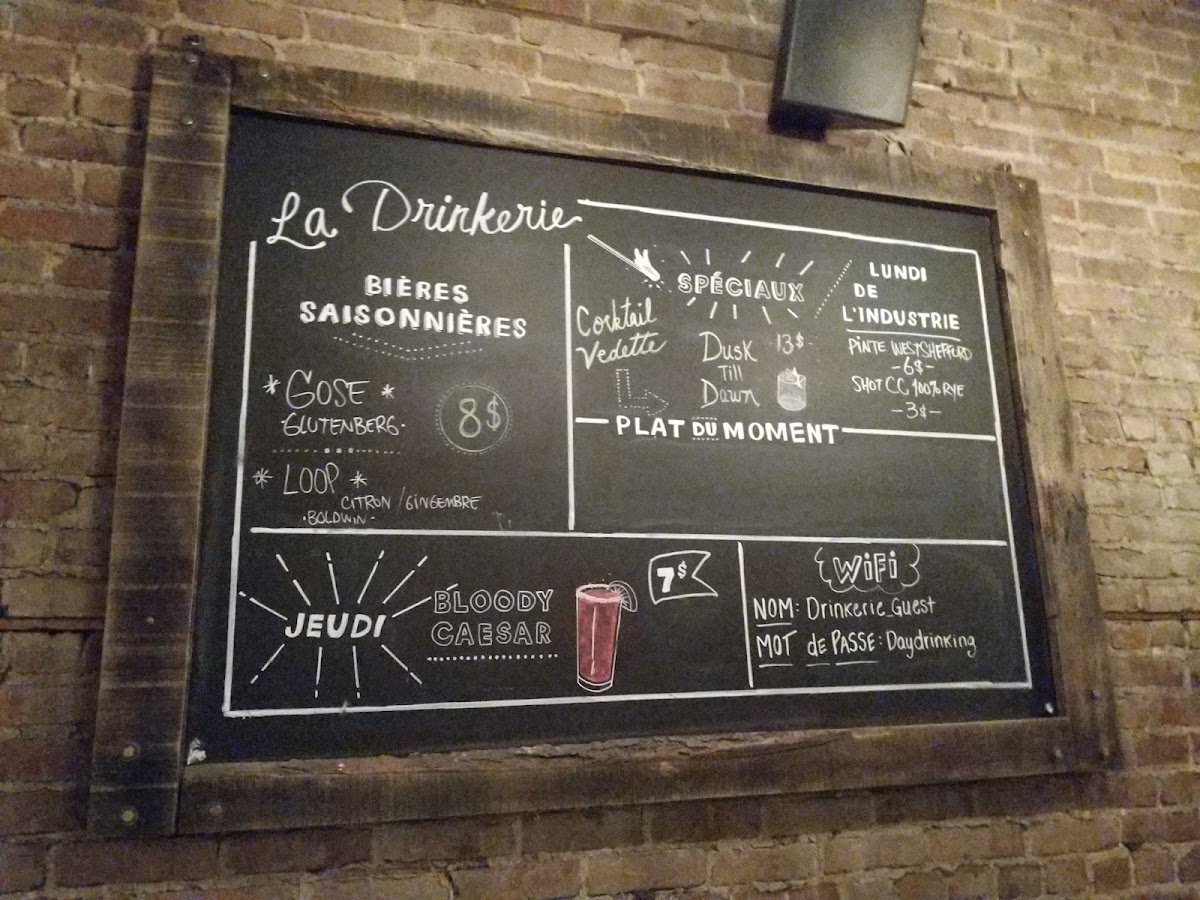 La Drinkerie
BIÈRES
SAISONNIÈRES
* GOSE *
-GLUTENBERG-
8$
* LOOP *
CITRON / GINGEMBRE
-BOLDWIN-
SPÉCIAUX
Cocktail
Vedette
Dusk
Till
Dawn
13$
LUNDI
DE
L'INDUSTRIE
PINTE WESTSHEFFORD
-6$-
SHOT C.C. 100% RYE
-3$-
PLAT DU MOMENT
JEUDI
BLOODY
CAESAR
7$
WiFi
NOM: Drinkerie_Guest
MOT de PASSE: Daydrinking